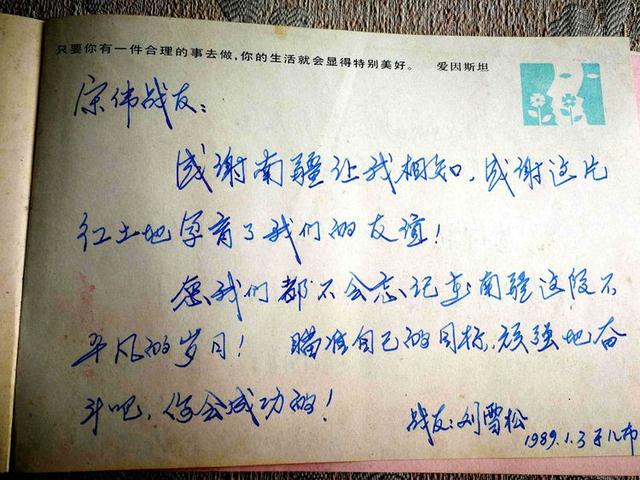 只要你有一件合理的事去做，你的生活就会显得特别美好。 爱因斯坦
宗伟战友：
感谢南疆让我相知，感谢这片
红土地孕育了我们的友谊！
愿我们都不会忘记在南疆这段不
平凡的岁月！ 瞄准自己的目标，顽强地奋
斗吧，你会成功的！
战友：刘雪松
1989.1.3于八布